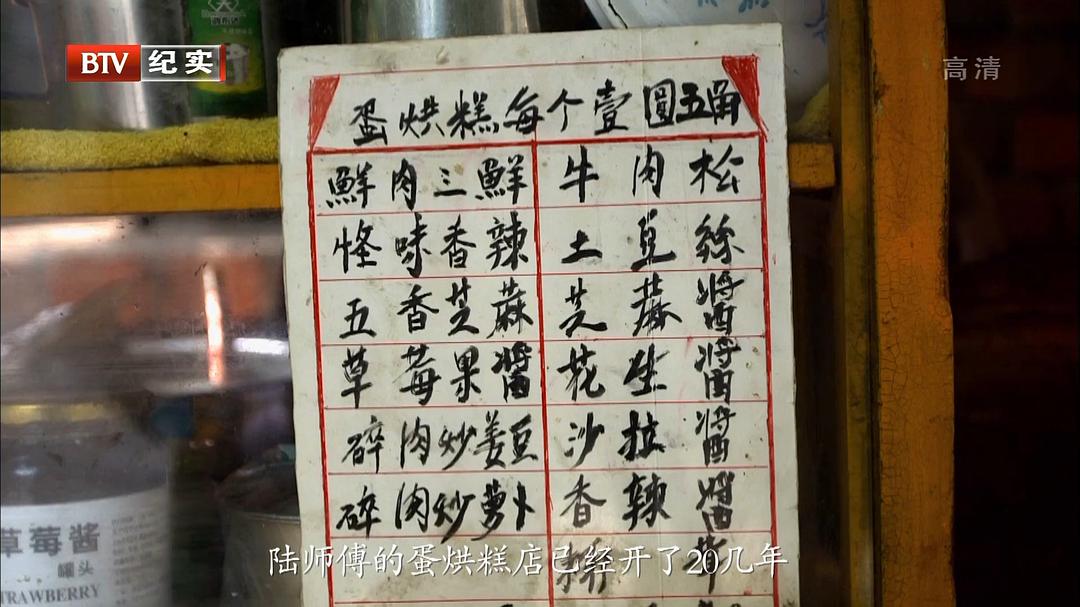 BTV 纪实
高清
蛋烘糕每个壹圓五角
鮮肉三鮮 牛肉松
怪味香辣 土豆絲
五香芝蔴 芝蔴醬
草莓果醬 花生醬
碎肉炒姜豆 沙拉醬
碎肉炒萝卜 香辣醬
陆师傅的蛋烘糕店已经开了20几年
草莓酱
罐头
TRAWBERRY